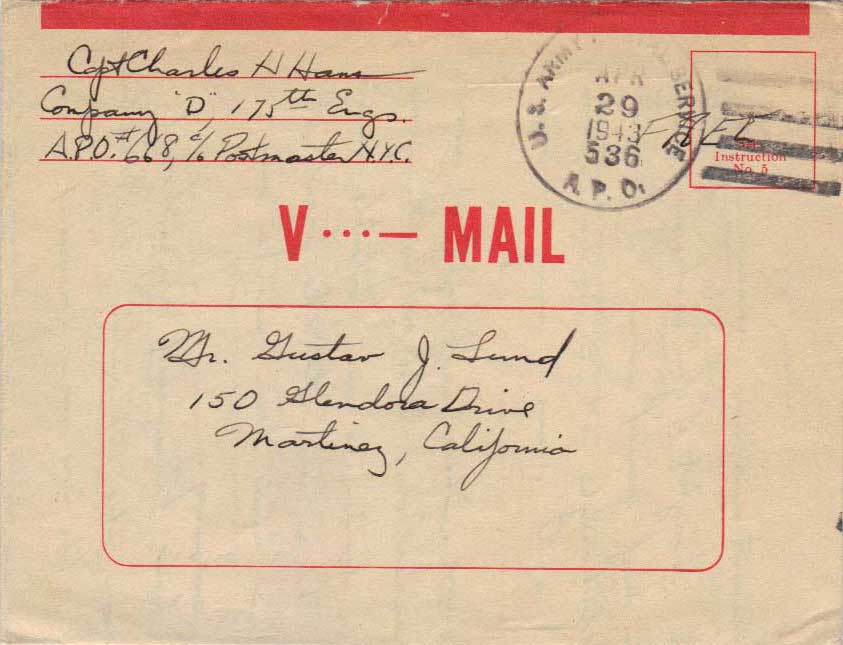 Capt Charles H Hans
Company "D", 175th Engs.
A.P.O. #668, c/o Postmaster N.Y.C.
U.S. ARMY POSTAL SERVICE
APR
29
1943
536
A. P. O.
FREE
Instruction
No. 5
V ···— MAIL
Mr. Gustav J. Lund
150 Glendora Drive
Martinez, California